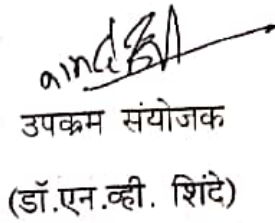 उपक्रम संयोजक
(डॉ.एन.व्ही. शिंदे)